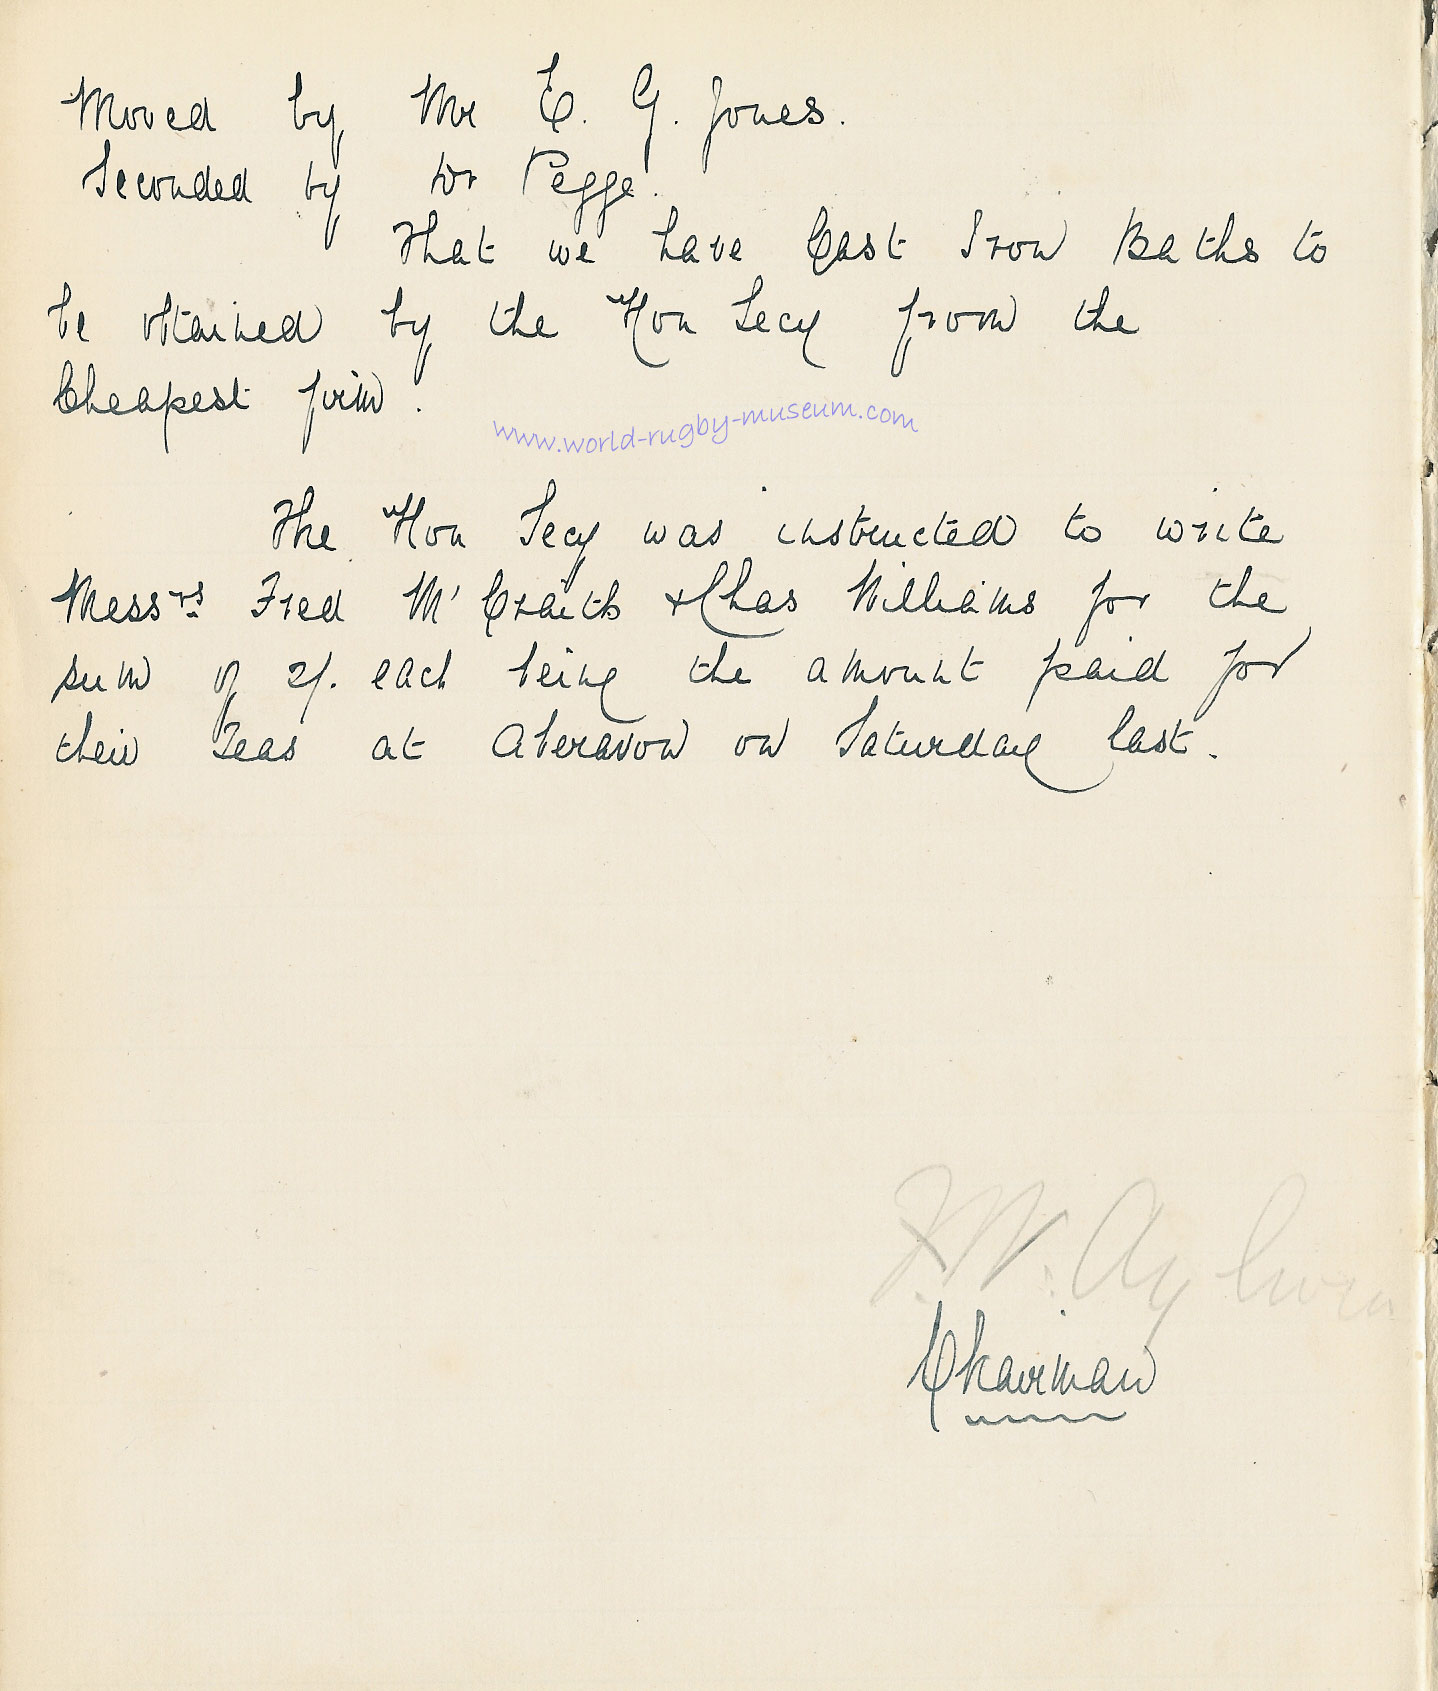 Moved by Mr E. G. Jones.
Seconded by Dr Pegge.
That we have Cast Iron Baths to
be obtained by the Hon Secy from the
Cheapest firm.
www.world-rugby-museum.com
The Hon Secy was instructed to write
Messrs Fred M'Craith & Chas Williams for the
sum of 2/. each being the amount paid for
their Teas at Aberavon on Saturday last.
F. W. Aylwin
Chairman